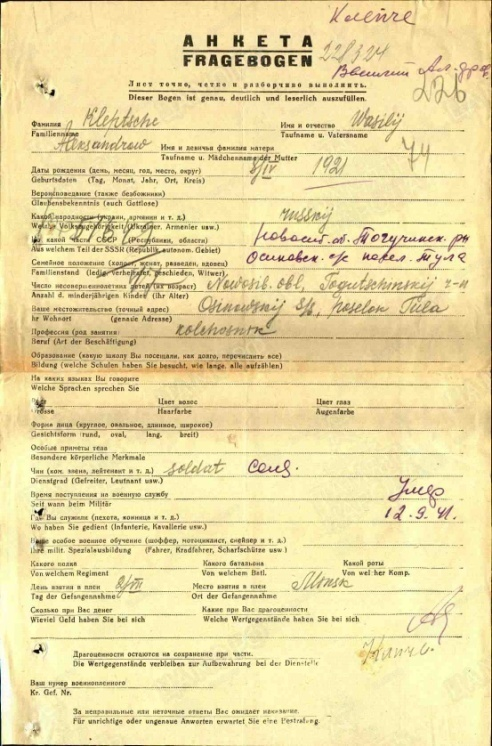 Клепче
АНКЕТА
FRAGEBOGEN
Василий
Лист точно, четко и разборчиво выполнить.
Dieser Bogen ist genau, deutlich und leserlich auszufüllen.
226
Фамилия Kleptsche Имя и отчество Wasilij
Familienname Taufname u. Vatersname
Aleksandrow Имя и девичья фамилия матери
Taufname u. Mädchenname der Mutter
74
Даты рождения (день, месяц, год, место, округ) 8/IV 1921
Geburtsdaten (Tag, Monat, Jahr, Ort, Kreis)
Вероисповедание (также безбожники)
Glaubensbekenntnis (auch Gottlose)
Какой народности (украин, армения и т. д.) russkij
Welche Volksangehörigkeit (Ukrainer, Armenier usw.)
Из какой части СССР (Республики, области) Новосиб. об. Тогучинск. р-н
Aus welchem Teil der SSSR (Republik, autonom. Gebiet) Осиновск. с/с посел. Тула
Семейное положение (холост, женат, разведен, вдовец)
Familienstand (ledig, verheiratet, geschieden, Witwer)
Число несовершеннолетних детей (их возраст) Nowosib. obl, Togutschinskij r-n
Anzahl d. minderjährigen Kinder (Ihr Alter)
Ваше местожительство (точный адрес) Osinowskij S/S, poselok Tula
Ihr Wohnort (genaue Adresse)
Профессия (род занятия) kolchosnik
Beruf (Art der Beschäftigung)
Образование (какую школу Вы посещали, как долго, перечислить все)
Bildung (welche Schulen haben Sie besucht, wie lange, alle aufzählen)
На каких языках Вы говорите
Welche Sprachen sprechen Sie
Цвет волос Цвет глаз
Grösse Haarfarbe Augenfarbe
Форма лица (круглое, овальное, длинное, широкое)
Gesichtsform (rund, oval, lang, breit)
Особые приметы тела
Besondere körperliche Merkmale
Чин (ком. звена, лейтенант и т. д.) soldat солд.
Dienstgrad (Gefreiter, Leutnant usw.)
Время поступления на военную службу Умер
Seit wann beim Militär
12.9.41.
Где Вы служили (пехота, конница и т. д.)
Wo haben Sie gedient (Infanterie, Kavallerie usw.)
Ваше особое военное обучение (шоффер, мотоциклист, снейпер и т. д.)
Ihre milit. Spezialausbildung (Fahrer, Kradfahrer, Scharfschütze usw.)
Какого полка Какого батальона Какой роты
Von welchem Regiment Von welchem Batl. Von welcher Komp.
День взятия в плен 2/VII Место взятия в плен Minsk
Tag der Gefangennahme Ort der Gefangennahme
Сколько при Вас денег Какие при Вас драгоценности
Wieviel Geld haben Sie bei sich Welche Wertgegenstände haben Sie bei sich
Драгоценности остаются на сохранение при части.
Die Wertgegenstände verbleiben zur Aufbewahrung bei der Dienststelle
Ваш нумер военнопленного
Kr. Gef. Nr.
За неправильные или неточные ответы Вас ожидает наказание.
Für unrichtige oder ungenaue Anworten erwartet Sie eine Bestrafung.